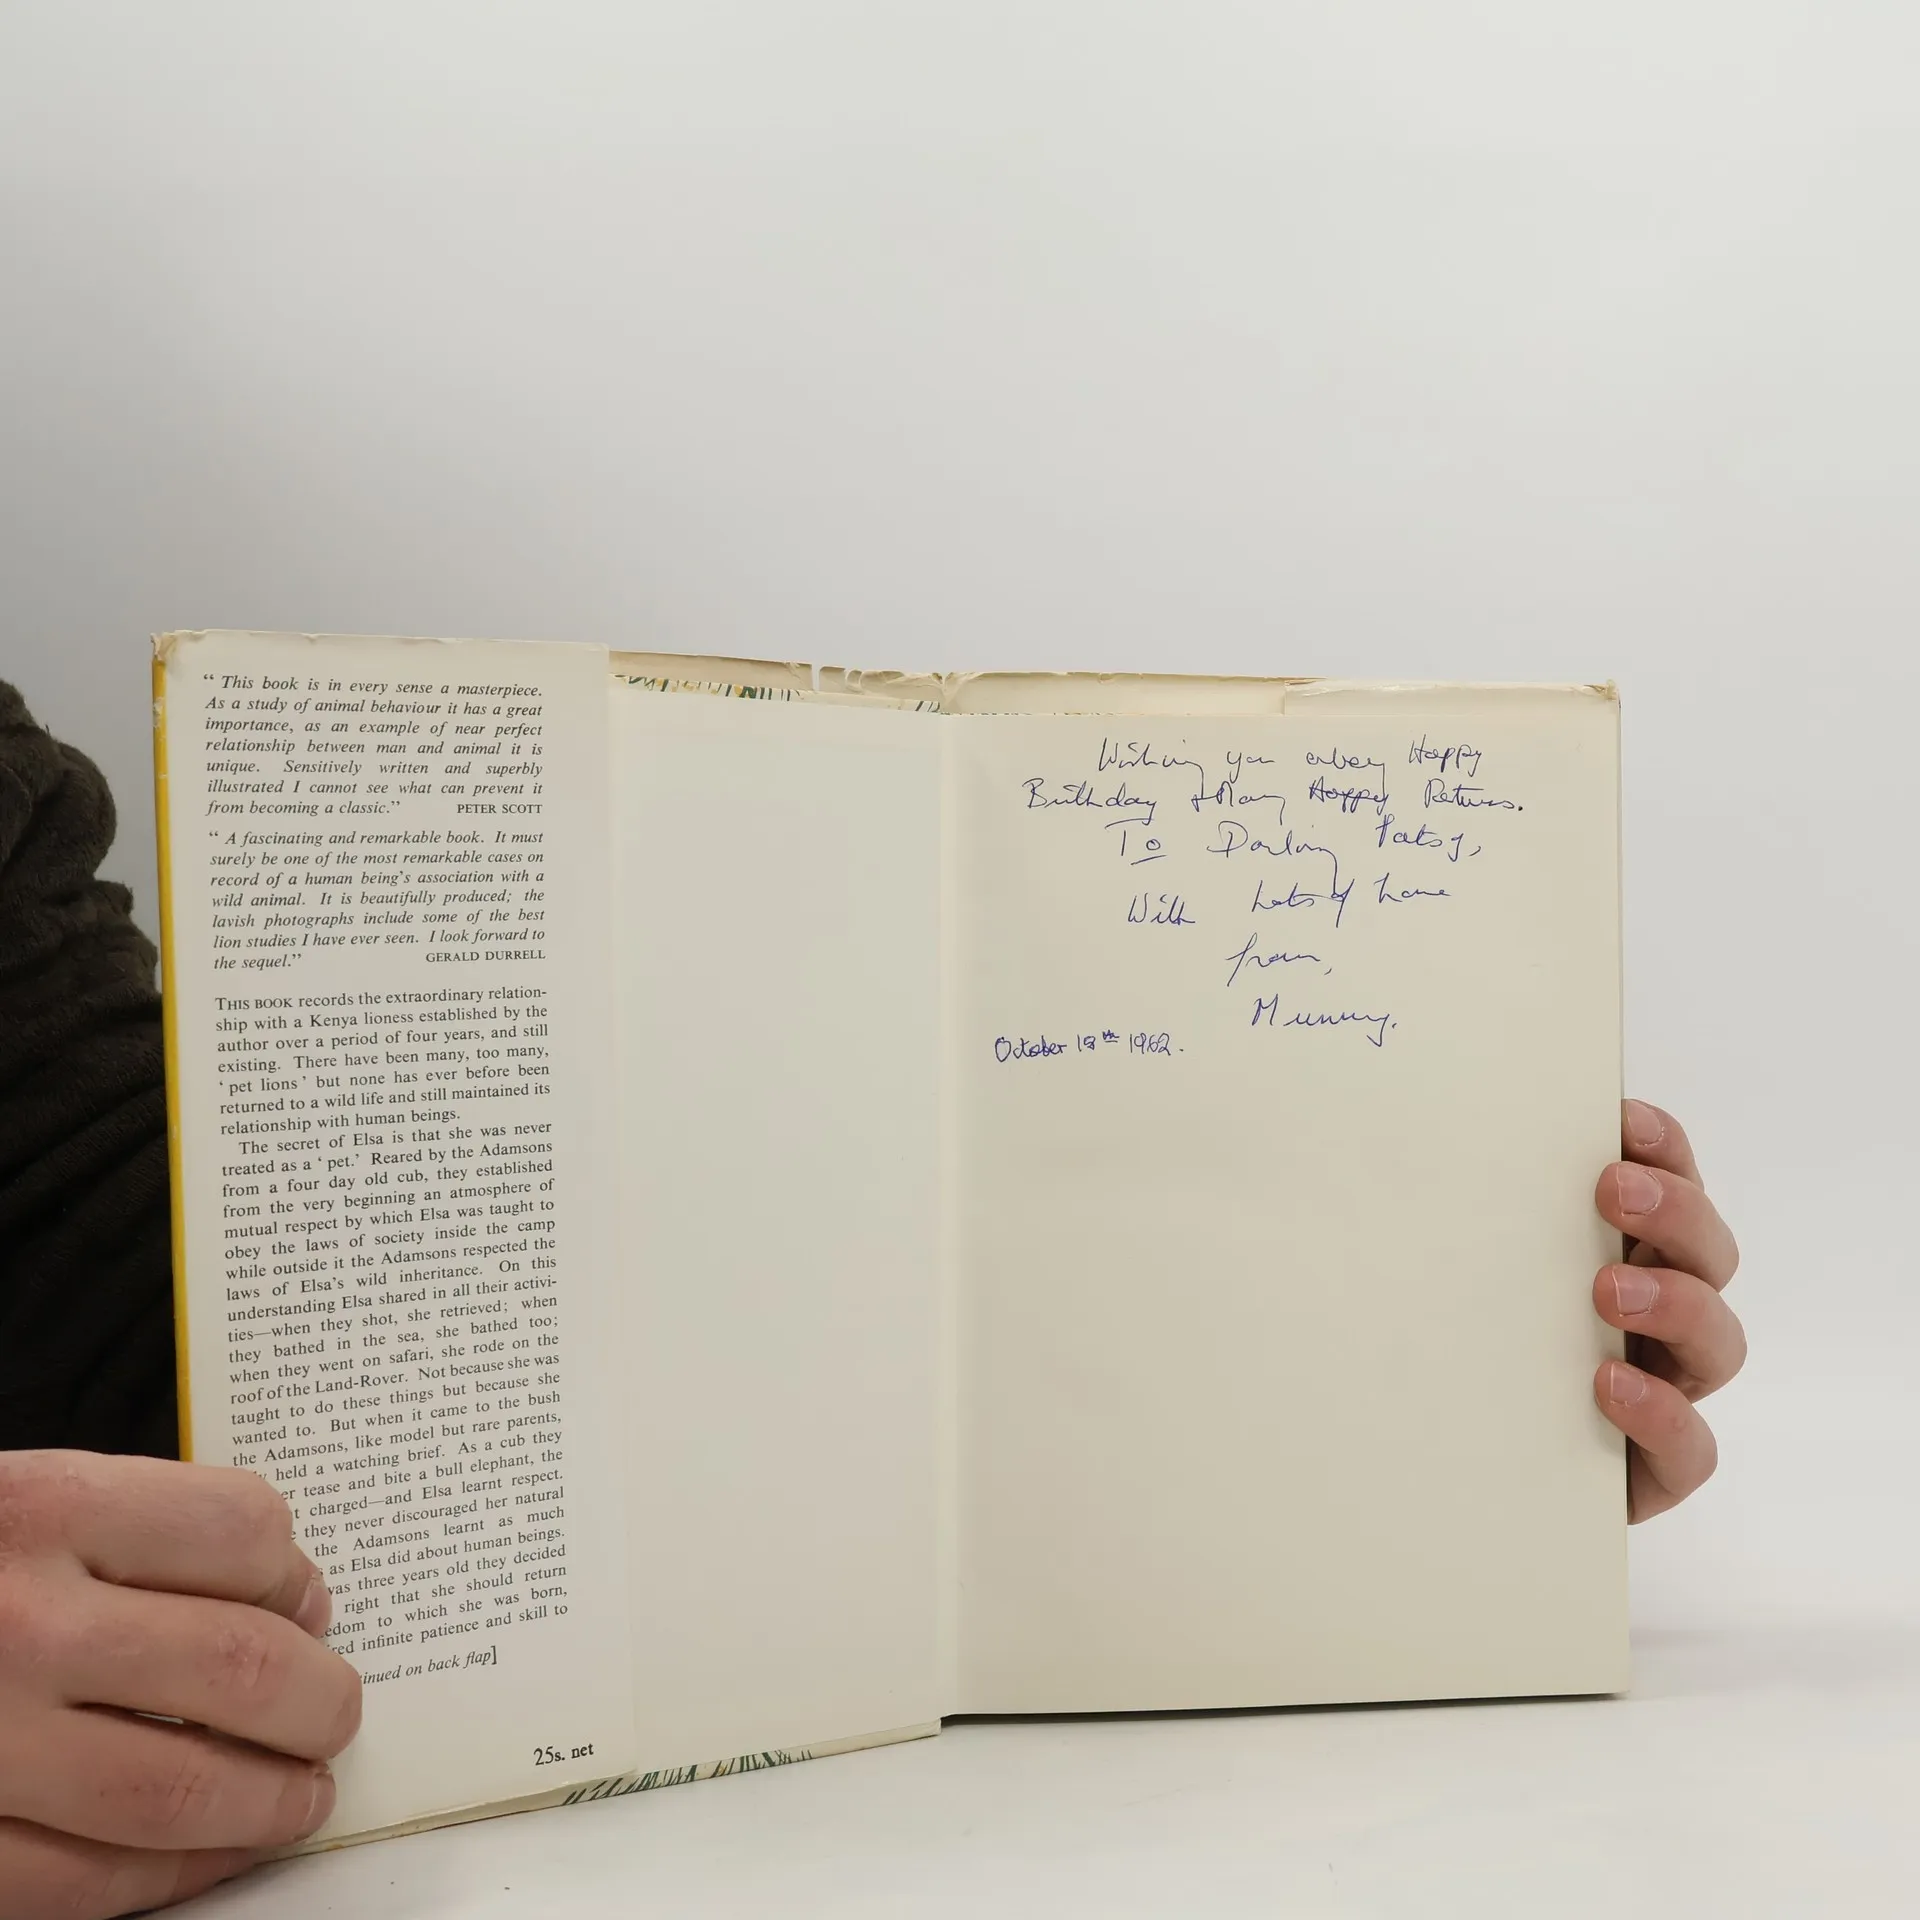 “ This book is in every sense a masterpiece.
As a study of animal behaviour it has a great
importance, as an example of near perfect
relationship between man and animal it is
unique. Sensitively written and superbly
illustrated I cannot see what can prevent it
from becoming a classic.” PETER SCOTT
“ A fascinating and remarkable book. It must
surely be one of the most remarkable cases on
record of a human being's association with a
wild animal. It is beautifully produced; the
lavish photographs include some of the best
lion studies I have ever seen. I look forward to
the sequel.” GERALD DURRELL
THIS BOOK records the extraordinary relation-
ship with a Kenya lioness established by the
author over a period of four years, and still
existing. There have been many, too many,
‘ pet lions ’ but none has ever before been
returned to a wild life and still maintained its
relationship with human beings.
The secret of Elsa is that she was never
treated as a ‘ pet.’ Reared by the Adamsons
from a four day old cub, they established
from the very beginning an atmosphere of
mutual respect by which Elsa was taught to
obey the laws of society inside the camp
while outside it the Adamsons respected the
laws of Elsa's wild inheritance. On this
understanding Elsa shared in all their activi-
ties—when they shot, she retrieved; when
they bathed in the sea, she bathed too;
when they went on safari, she rode on the
roof of the Land-Rover. Not because she was
taught to do these things but because she
wanted to. But when it came to the bush
the Adamsons, like model but rare parents,
held a watching brief. As a cub they
tease and bite a bull elephant, the
charged—and Elsa learnt respect.
they never discouraged her natural
the Adamsons learnt as much
as Elsa did about human beings.
was three years old they decided
right that she should return
to which she was born,
infinite patience and skill to
on back flap]
25s. net
Wishing you a very Happy
Birthday & Many Happy Returns.
To Darling Patsy,
With Lots of Love
from,
Mummy.
October 1962.